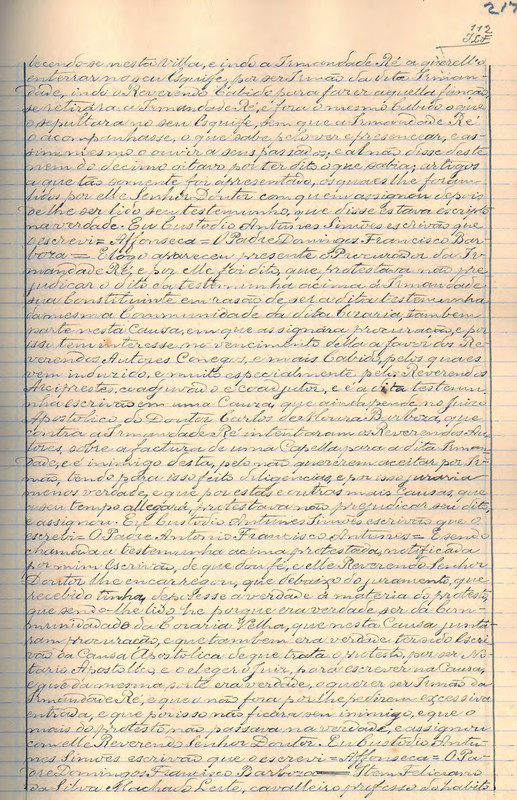 217
112
lecendo se nesta Villa, e indo a Irmandade Ré a querello
enterrar no seu Esquife, por ser Irmão da dita Irman-
dade, indo o Reverendo Cabido para fazer aquella função
se retirára a Irmandade Ré, e fora o mesmo Cabido o que
o sepultura no seu Esquife, sem que a Irmandade Ré
o acompanhasse, o que sabe pelo ver e presencear, e as-
sim mesmo o ouvir a seus passados, e al não disse deste
nem do decimo oitavo por ter dito o que sabia; artigos
a que tão somente foi apresentado, os quaes lhe foram
lidos por elle Senhor Doutor com quem assignou depois
de lhe ser lido seu testemunho, que disse Estava escripto
na verdade. Eu Custodio Antunes Simões escrivão que
o escrevi = Affonseca = O Padre Domingos Francisco Bar-
boza = E logo apareceu presente o Procurador da Ir-
mandade Ré, e por elle foi dito, que protestava não pre-
judicar o dito da testemunha acima á Irmandade
sua Constituinte em rasão de ser a dita testemunha
da mesma Communidade da dita Coraria, tambem
parte nesta Causa, em que assignára procuração, e por
isso tem interesse no vencimento della a favor dos Re-
verendos Autores Conegos, e mais Cabido, pelos quaes
vem induzido, e muito especialmente pelo Reverendo
Arcipreste, coadjuvado e coadjutor, e é a dita testemu-
nha escrivão em uma Causa, que ainda pende no Juizo
Apostolico do Doutor Carlos de Moura Barboza, que
contra a Irmandade Ré intentaram os Reverendos Au-
tores, sobre a factura de uma Capella para a dita Irman-
dade, e é inimigo desta, pelo não quererem aceitar por Ir-
mão, tendo para isso feito diligencias, e por isso juraria
menos verdade, e que por estas e outras mais Causas, que
a seu tempo allegará, protestava não prejudicar seu dito,
e assignou. Eu Custodio Antunes Simões escrivão que o
escrevi = O Padre Antonio Francisco Antunes = E sendo
chamada a testemunha acima protestada, notificada
por mim Escrivão, de que dou fé, e elle Reverendo Senhor
Doutor lhe encarregou, que debaixo do juramento, que
recebido tinha, depozesse a verdade á materia do protesto,
que sendo-lhe lido, he porque era verdade ser da Com-
munidade da Coraria Velha, que nesta Causa junta-
ram procuração, e que tambem era verdade ter sido Escri-
vão da Causa Apostolica de que trata o protesto, por ser No-
tario Apostolico, e o eleger o Juiz, para escrever na Causa,
e que da mesma sorte era verdade, o querer ser Irmão da
Irmandade Ré, e que o não fora por lhe pedirem excessiva
entrada, e que por isso não ficára seu inimigo, e que o
mais do protesto não passava na verdade, e assignou
com elle Reverendo Senhor Doutor. Eu Custodio Antu-
nes Simões escrivão que o escrevi = Affonseca = O Pa-
dre Domingos Francisco Barboza = Item Feliciano
da Silva Machado Leite, cavalleiro professo do habito